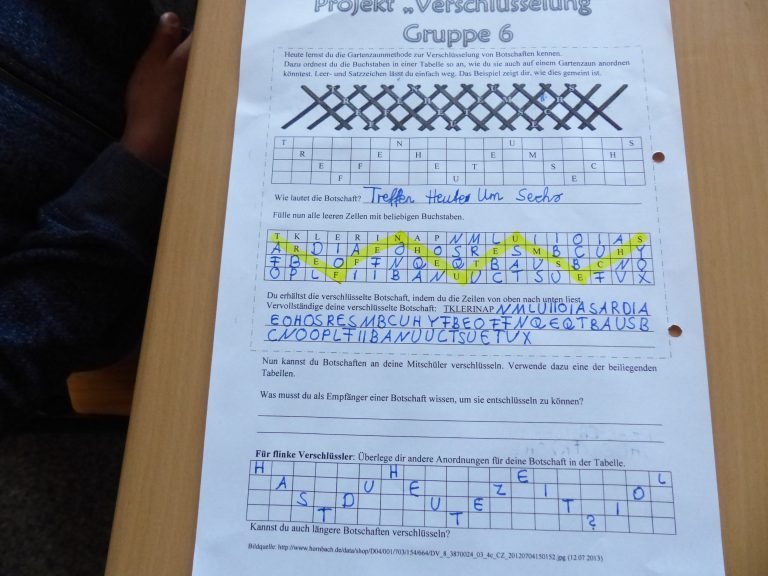 Projekt „Verschlüsselung
Gruppe 6
Heute lernst du die Gartenzaunmethode zur Verschlüsselung von Botschaften kennen.
Dazu ordnest du die Buchstaben in einer Tabelle so an, wie du sie auch auf einem Gartenzaun anordnen
könntest. Leer- und Satzzeichen lässt du einfach weg. Das Beispiel zeigt dir, wie dies gemeint ist.
T N U S
R E H E M H
E F E T S C
F U E
Wie lautet die Botschaft? Treffen Heute Um Sechs
Fülle nun alle leeren Zellen mit beliebigen Buchstaben.
T K L E R I N A P N M L U I I O I A S
A R D I A E O H O S R E S M B C U H Y
F B E O F F N Q E Q T B A U S B C N O
O P L F I I B A N U U C T S U E T V X
Du erhältst die verschlüsselte Botschaft, indem du die Zeilen von oben nach unten liest.
Vervollständige deine verschlüsselte Botschaft: TKLERINAP NMLUIIOIASARDIA
EOHOSRESMBCUHYFBEOFFNQEQTBAUSB
CNOOPLFIIBANUUCTSUETVX
Nun kannst du Botschaften an deine Mitschüler verschlüsseln. Verwende dazu eine der beiliegenden
Tabellen.
Was musst du als Empfänger einer Botschaft wissen, um sie entschlüsseln zu können?
Für flinke Verschlüssler: Überlege dir andere Anordnungen für deine Botschaft in der Tabelle.
H H E L
A U E Z I O
S D U E T I
T T ?
Kannst du auch längere Botschaften verschlüsseln?